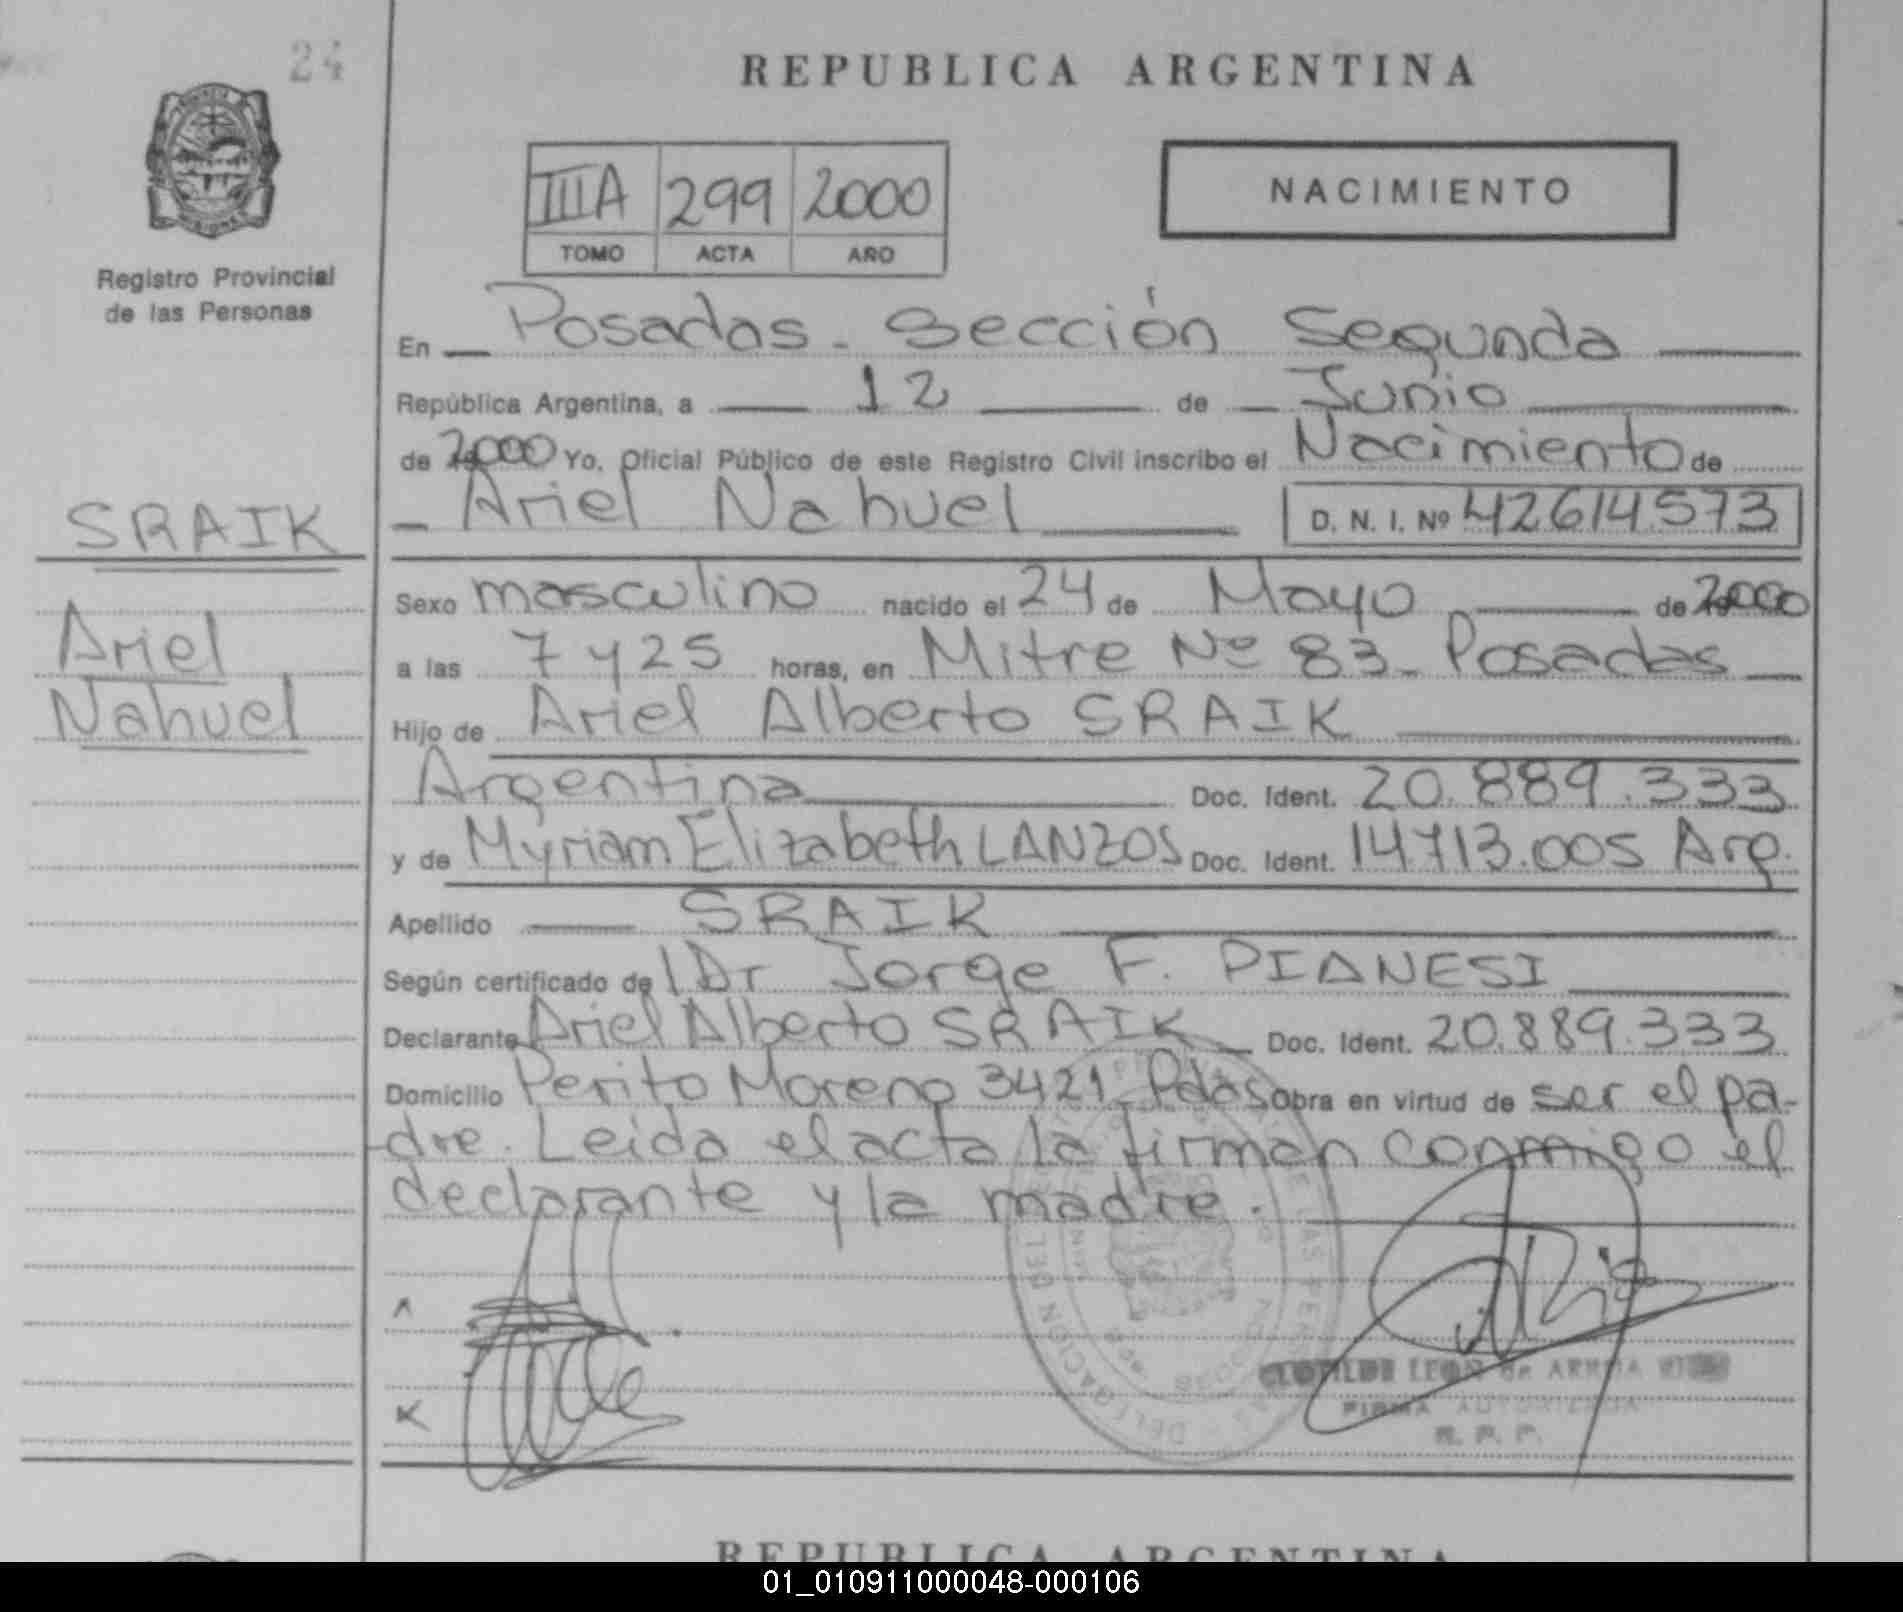 24
REPUBLICA ARGENTINA
IIIA 299 2000
TOMO ACTA AÑO
NACIMIENTO
Registro Provincial
de las Personas
En Posadas - Sección Segunda
República Argentina, a 12 de Junio
de 2000 Yo, Oficial Público de este Registro Civil inscribo el Nacimiento de
Ariel Nahuel D. N. I. Nº 42614573
SRAIK
Ariel
Nahuel
Sexo masculino nacido el 24 de Mayo de 2000
a las 7 y 25 horas, en Mitre Nº 83 - Posadas
Hijo de Ariel Alberto SRAIK
Argentina Doc. Ident. 20.889.333
y de Myriam Elizabeth LANZOS Doc. Ident. 14.713.005 Arg.
Apellido SRAIK
Según certificado de l Dr Jorge F. PIANESI
Declarante Ariel Alberto SRAIK Doc. Ident. 20.889.333
Domicilio Perito Moreno 3421 - Pdas Obra en virtud de ser el pa-
dre. Leida el acta la firman conmigo el
declarante y la madre.
CLOTILDE LEON de
FIRMA AUTORIZADA
R. P. P.
REPUBLICA ARGENTINA
01_010911000048-000106